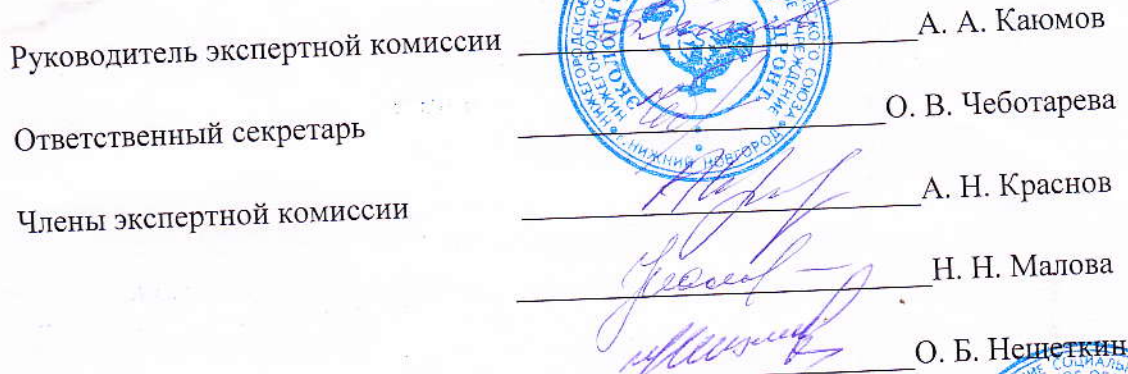 Руководитель экспертной комиссии А. А. Каюмов
Ответственный секретарь О. В. Чеботарева
Члены экспертной комиссии А. Н. Краснов
Н. Н. Малова
О. Б. Нещеткин
ДРОНТ
НИЖНИЙ НОВГОРОД